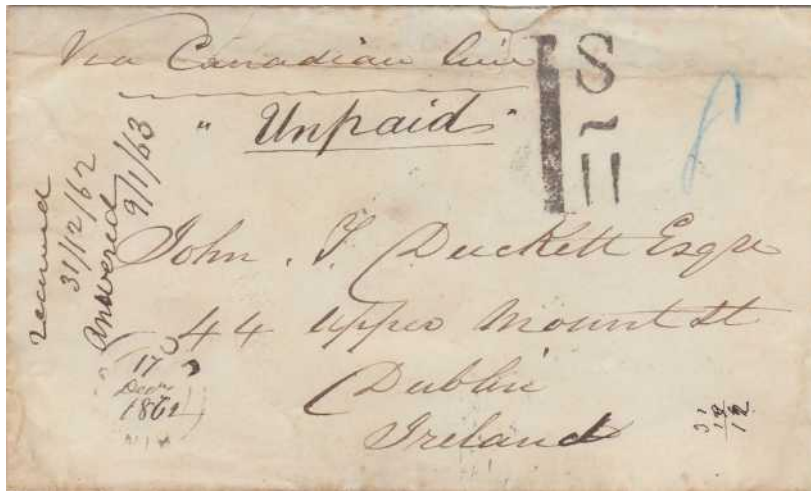 Via Canadian line
" Unpaid "
S
~
11
received
31/12/62
answered
9/1/63
John . F Duckett Esqre
44 Upper Mount St
Dublin
Ireland
17
Decr
1862
31
18
13